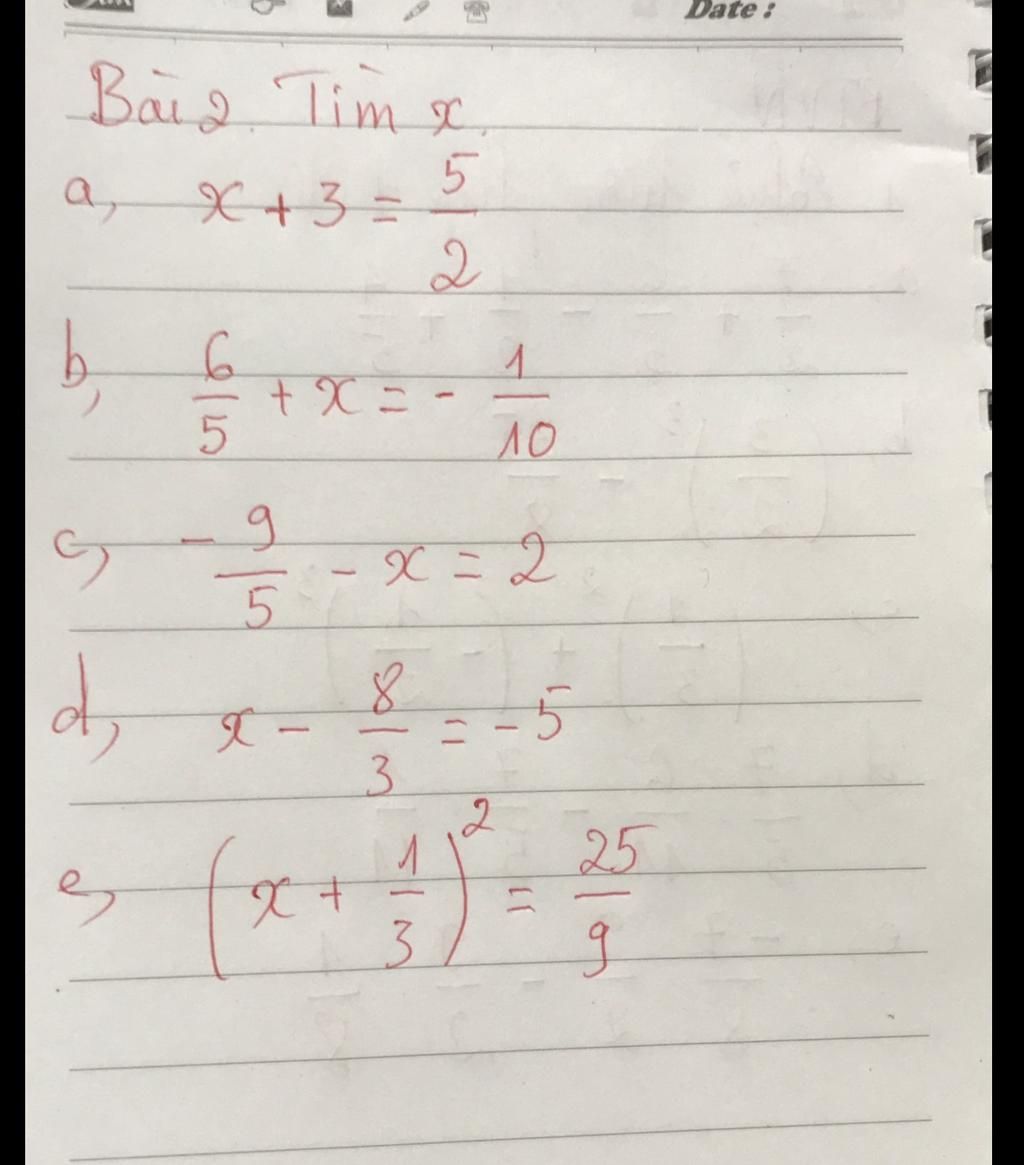 Date :
Bài 2. Tìm x.
a, x + 3 = 5/2
b, 6/5 + x = - 1/10
c, - 9/5 - x = 2
d, x - 8/3 = - 5
e, (x + 1/3)² = 25/9